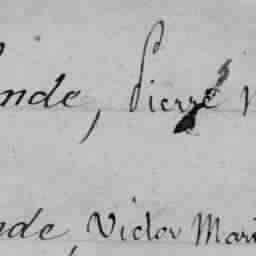 nde, Pierre
nde, Victor Mari